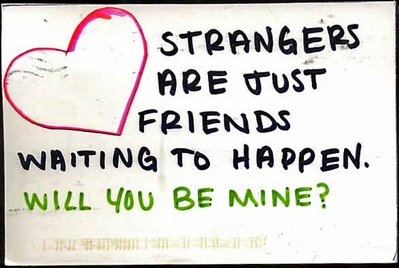 STRANGERS
ARE JUST
FRIENDS
WAITING TO HAPPEN.
WILL YOU BE MINE?